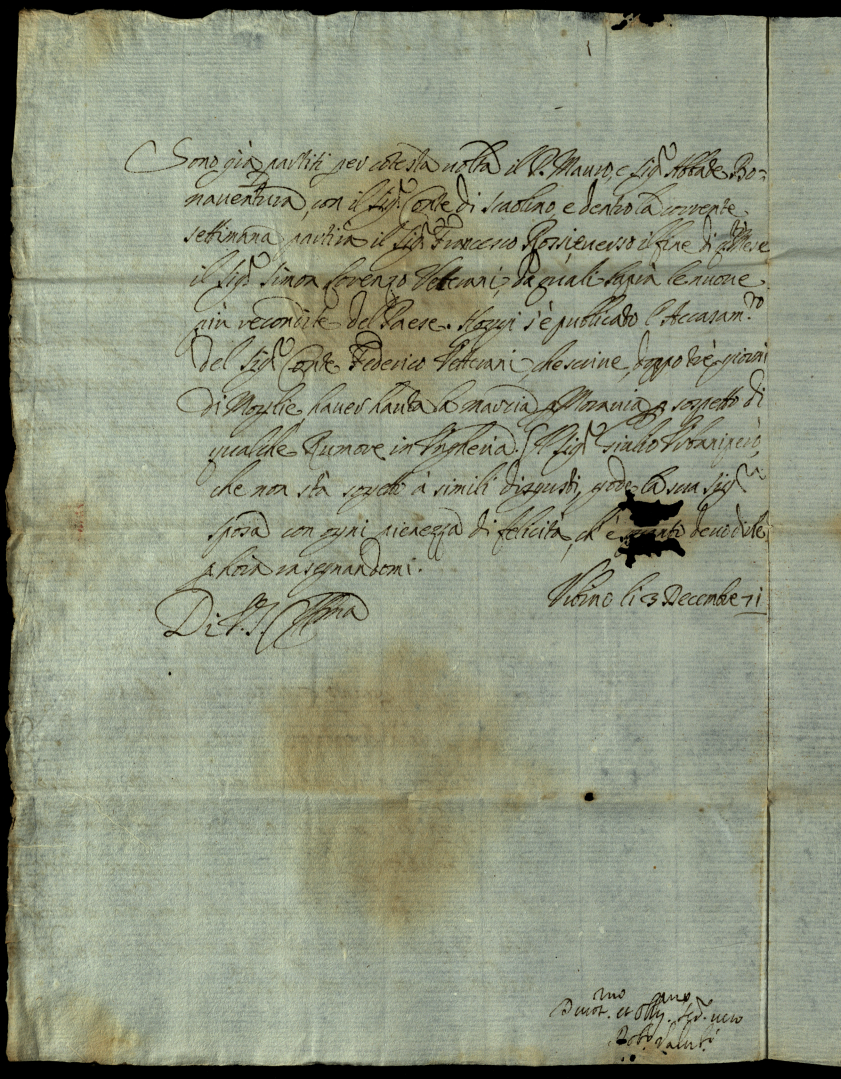 Sono già partiti per cotesta volta il P. Mauro, e Sig.r Abbate Bo=
naventura, con il Sig.r Conte di Scaolino, e dentro la corrente
settimana partirà il Sig.r Francesco Rossi, e verso il fine di q.to Mese
il Sig.r Simon Lorenzo Vetterani, da quali saprà le nuove
più recondite del Paese. Hoggi s'è publicato l'Accasam.to
del Sig.r Conte Federico Vetterani, che scrive, doppo tre giorni
di Moglie haver hauta la marcia p Moravia p sospetto di
qualche Rumore in Ungheria. Il Sig.r Giulio però,
che non stà sogetto à simili disgusti, gode la sua Sig.ra
sposa con ogni pienezza di felicità, ch'è devo dirle
p hora rasegnandomi.
Di V. S. Ill.ma
Urbino li 3 Decembre 71
Devot.mo et Obg.mo Ser. vero